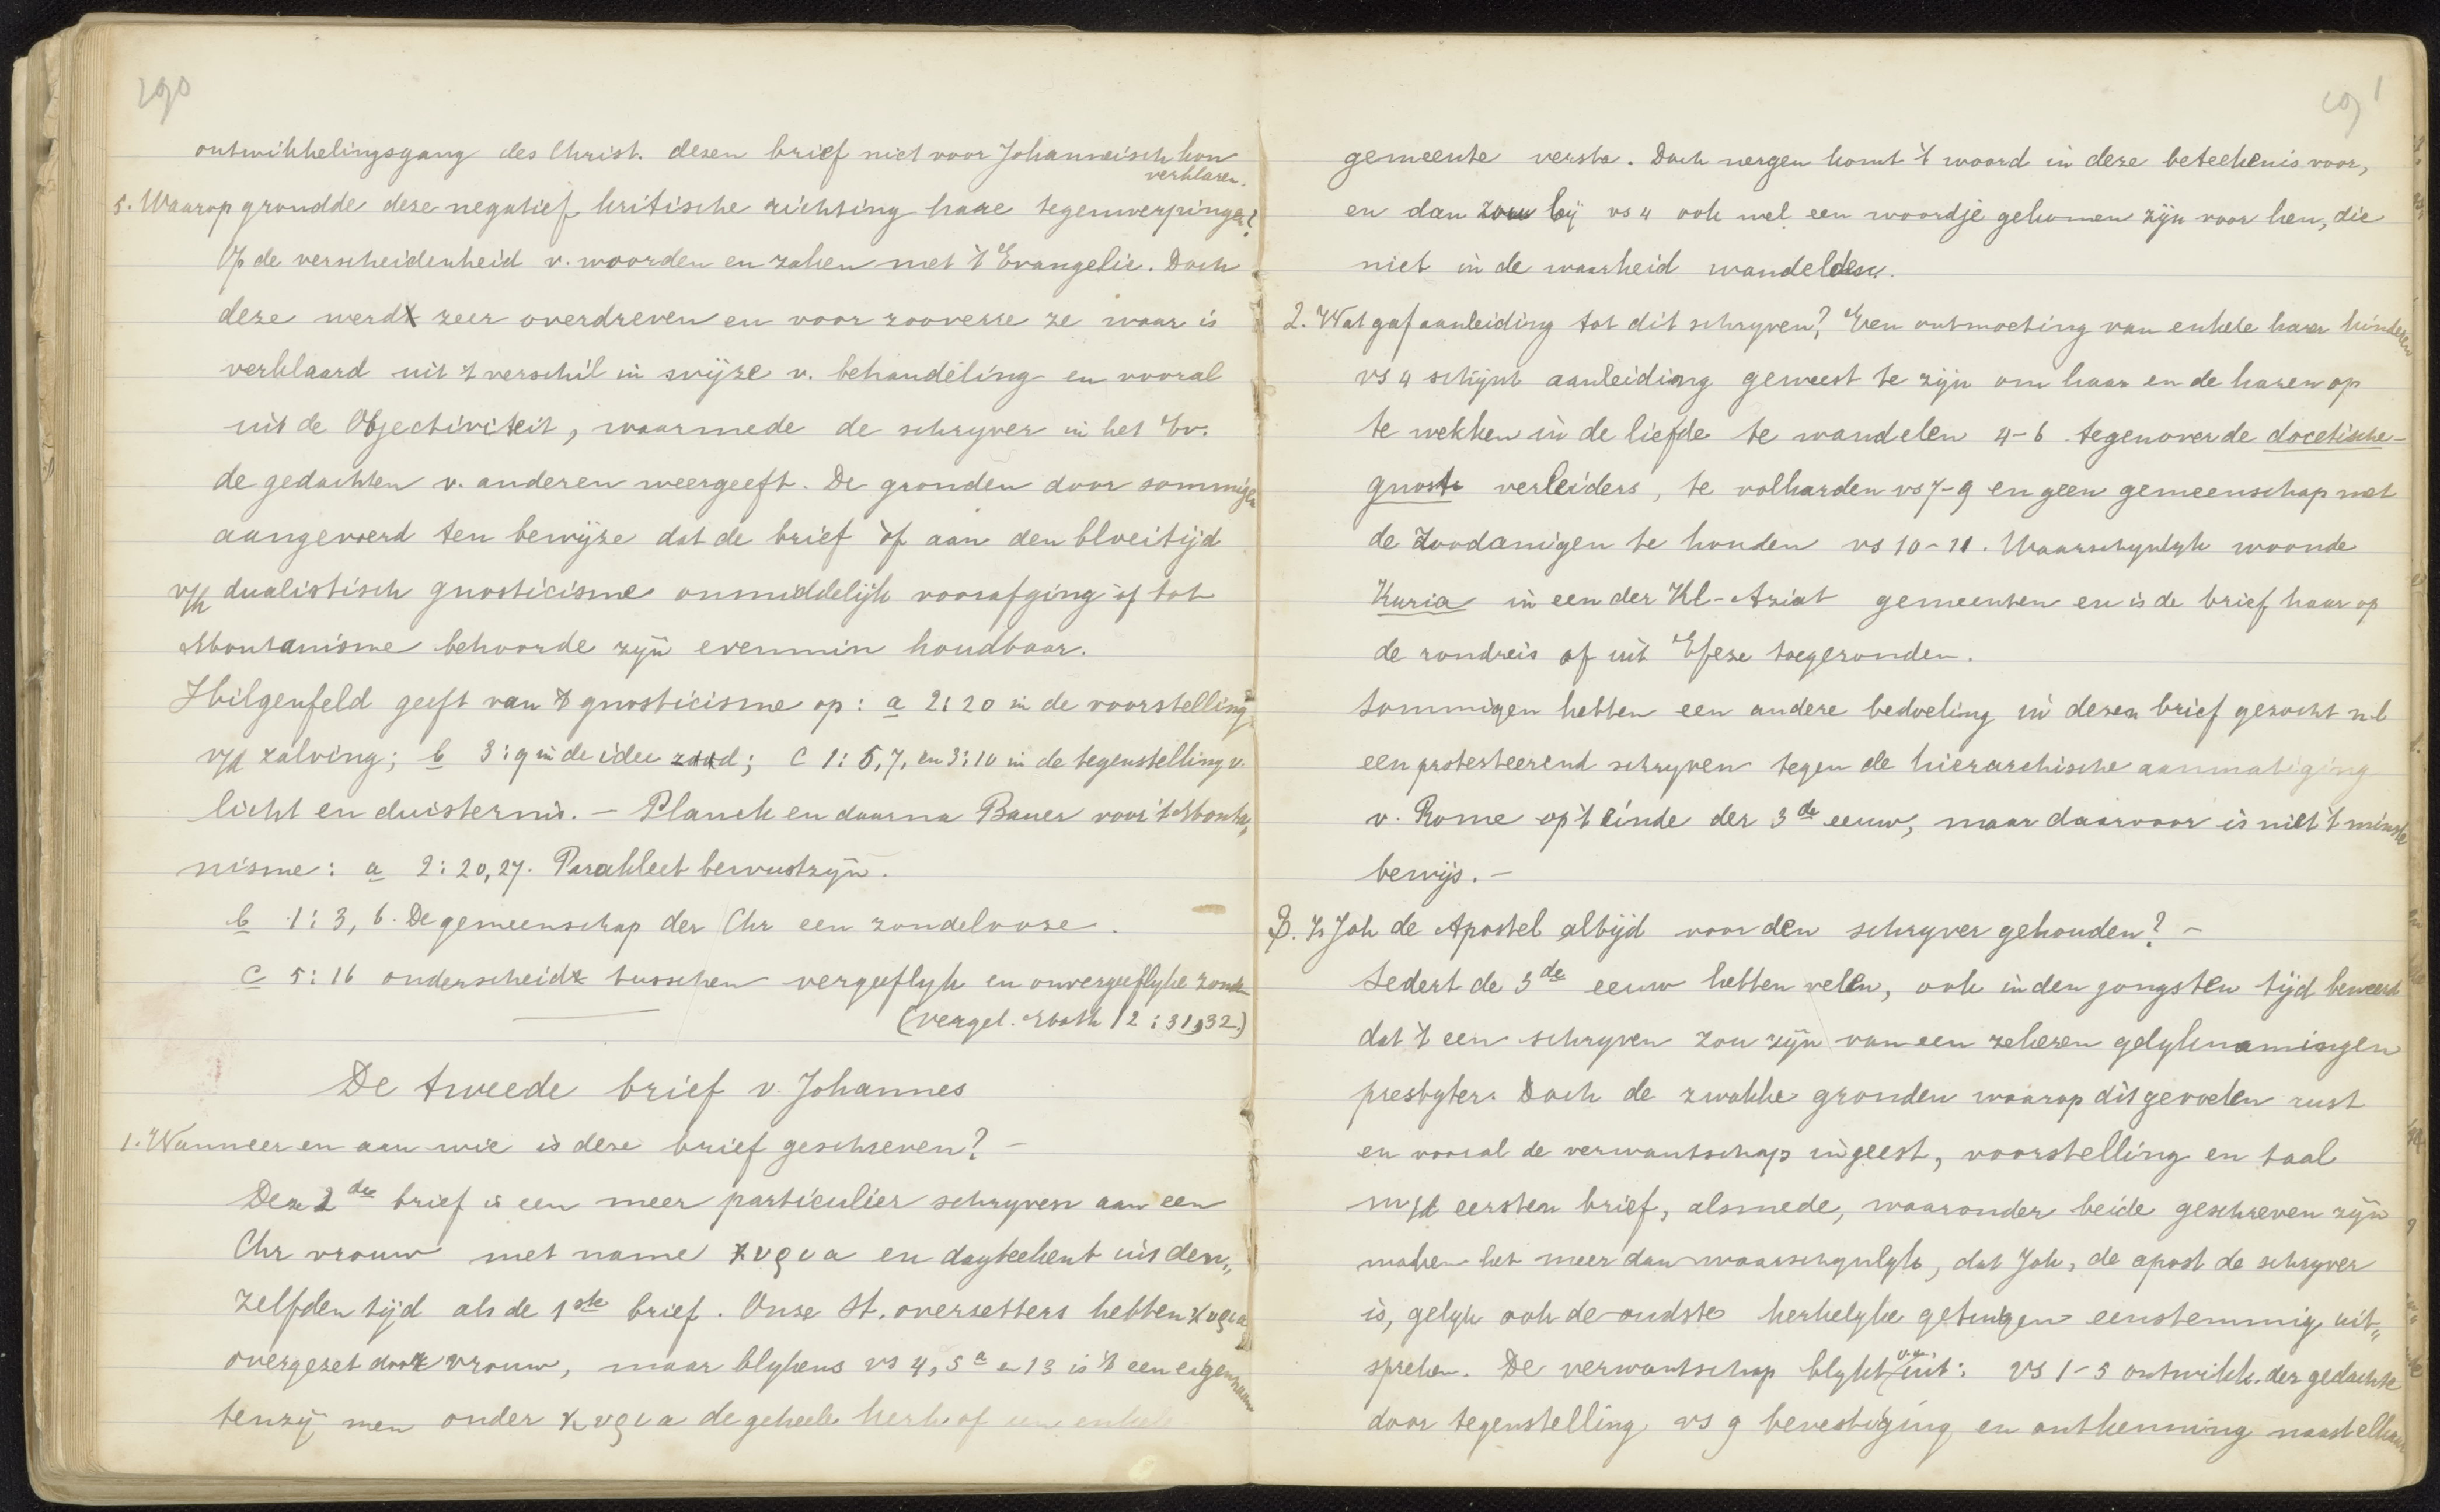 290
ontwikkelingsgang des Christ. dezen brief niet voor Johanneisch kon
verklaren.
5. Waarop grondde deze negatief kritische richting hare tegenwerpingen?
Op de verscheidenheid v. woorden en zaken met 't Evangelie. Doch
deze werd zeer overdreven en voor zooverre ze waar is
verklaard uit 't verschil in wijze v. behandeling en vooral
uit de Objectiviteit, waarmede de schryver in het Ev.
de gedachten v. anderen weergeeft. De gronden door sommigen
aangevoerd ten bewijze dat de brief òf aan den bloeitijd
v/h dualistisch gnosticisme onmiddelijk voorafging òf tot
Montanisme behoorde zijn evenmin houdbaar.
Hilgenfeld geeft van 't gnosticisme op: a 2:20 in de voorstelling
v/d zalving; b 3:9 in de idee zaad; c 1:5,7, en 3:10 in de tegenstelling v.
licht en duisternis. - Planck en daarna Bauer voor 't Monta„
nisme: a 2:20,27. Parakleet bewustzijn.
b 1:3, 6. De gemeenschap der Chr een zondelooze.
c 5:16 onderscheid tusschen vergeeflyk en onvergeeflyke zonde
(vergel. Matth 12:31,32.)
De tweede brief v. Johannes
1. Wanneer en aan wie is deze brief geschreven? -
Deze 2de brief is een meer particulier schryven aan een
Chr vrouw met name κυρια en dagteekent uit den„
zelfden tijd als de 1ste brief. Onze St. overzetters hebben κυρια
overgezet door vrouw, maar blykens vs 4, 5a en 13 is 't een eigennaam
tenzij men onder κυρια de geheele kerk of een enkele
291
gemeente versta. Doch nergen komt 't woord in deze beteekenis voor,
en dan zou bij vs 4 ook wel een woordje gekomen zijn voor hen, die
niet in de waarheid wandelden.
2. Wat gaf aanleiding tot dit schryven? Een ontmoeting van enkele harer kinderen
vs 4 schijnt aanleiding geweest te zijn om haar en de haren op
te wekken in de liefde te wandelen 4-6 tegenover de docetische-
gnost verleiders, te volharden vs 7-9 en geen gemeenschap met
de zoodanigen te houden vs 10-11. Waarschynlyk woonde
Kuria in een der Kl-Aziat gemeenten en is de brief haar op
de rondreis of uit Efeze toegezonden.
Sommigen hebben een andere bedoeling in dezen brief gezocht nl
een protesteerend schryven tegen de hierarchische aanmatiging
v. Rome op 't einde der 3de eeuw, maar daarvoor is niet 't minste
bewijs. -
3. Is Joh de Apostel altijd voor den schryver gehouden? -
Sedert de 3de eeuw hebben velen, ook in den jongsten tijd beweerd
dat 't een schryven zou zijn van een zekeren gelyknamigen
presbyter. Doch de zwakke gronden waarop dit gevoelen rust
en vooral de verwantschap in geest, voorstelling en taal
m/d eersten brief, alsmede, waaronder beide geschreven zijn
maken het meer dan waarschynlyk, dat Joh, de apost de schryver
is, gelyk ook de oudste kerkelyke getuigen eenstemmig uit„
spreken. De verwantschap blykt v.a. uit: vs 1-5 ontwikk. der gedachte
door tegenstelling vs 9 bevestiging en ontkenning naast elkaar